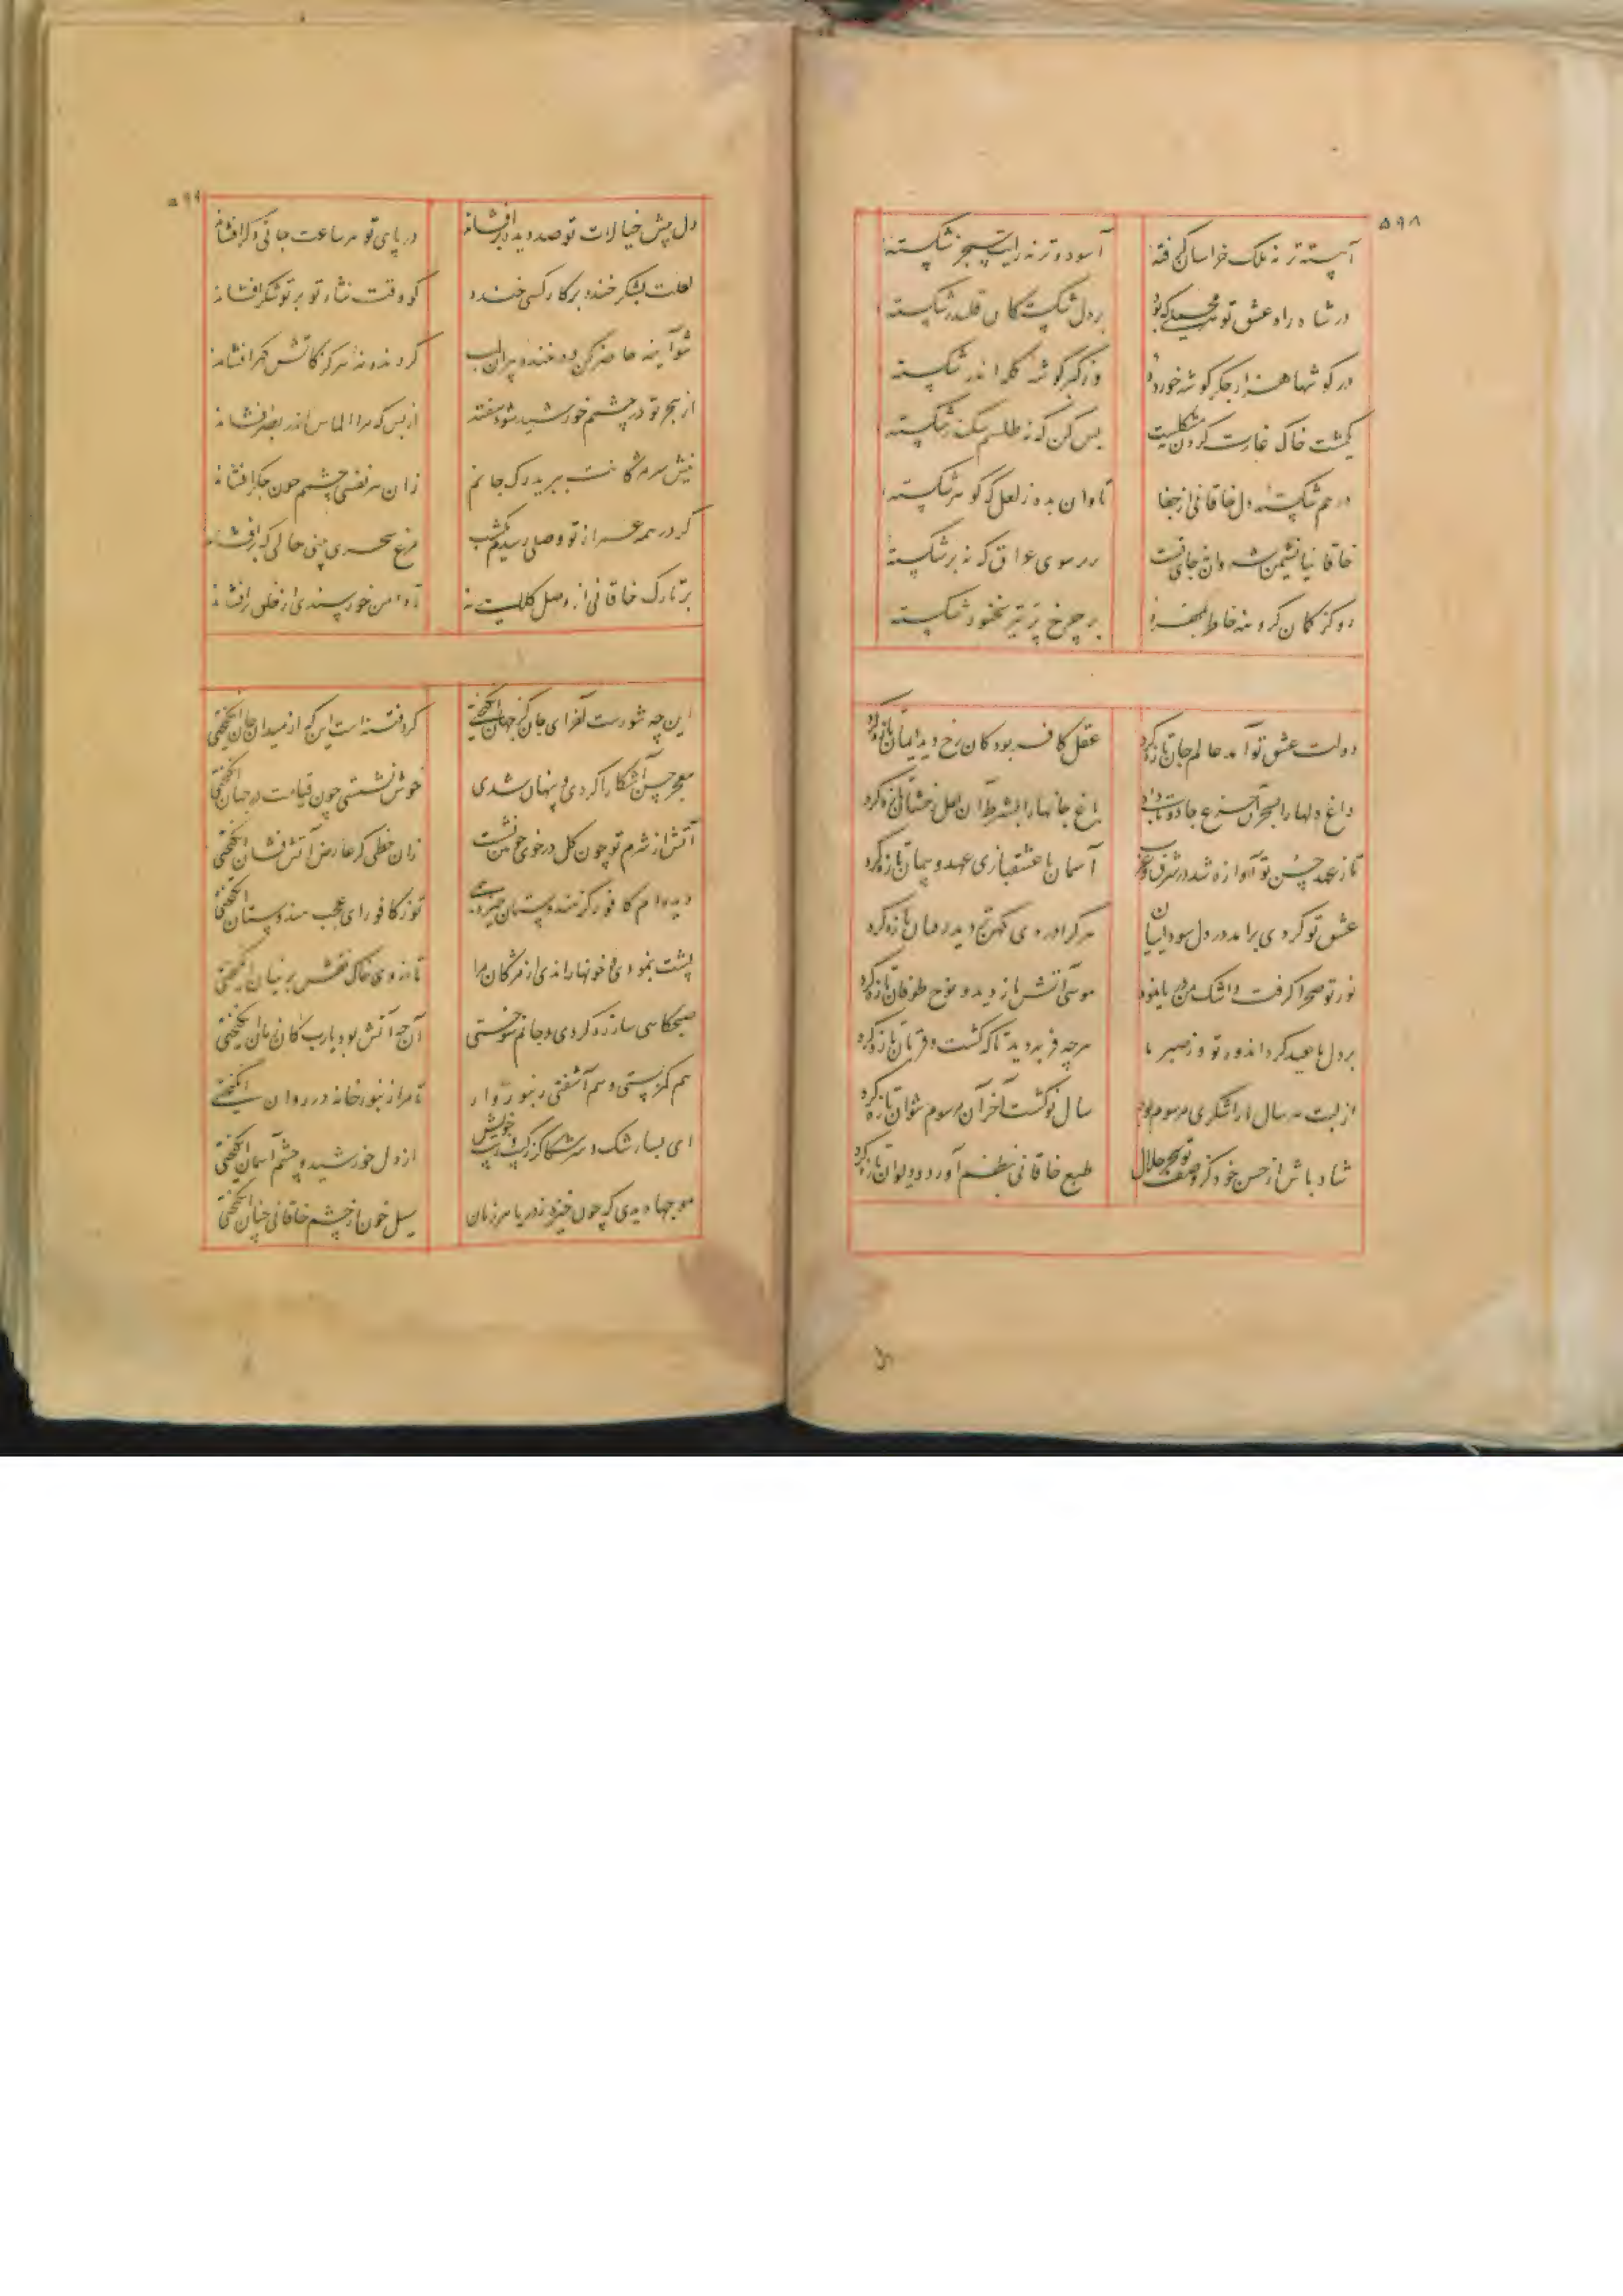 ۵۹۸
آهسته‌تر نه ملک خراسان گرفته آسوده‌تر نه رایت سنجر شکسته
در شاه راه عشق تو بردل شکسته قلندر شکسته
در کوشها هزار جکر کوشه خورده وز کبر کوشه کله اندر شکسته
یکمشت خاک غارت کردن مشکلیست بس کن که نه طلسم سکندر شکسته
درهم شکسته دل خاقانی از جفا تاوان بده ز لعل که کوهر شکسته
خاقانیا نشیمن شروان نه جای تست سوی عراق که نه برشکسته
بر چرخ پر تیز شکسته
دولت عشق تو آمد عالم جان تازه کرد عقل کافر بود کان رخ دید ایمان تازه کرد
داغ دلها را بسحر آن جزع جادو تاب داد باغ جانها را بشرط آن لعل رخشان تازه کرد
تا ز عهد حسن تو آوازه شد در شرق و غرب آسمان با عشقبازی عهد و پیمان تازه کرد
عشق تو کردی برامد در دل سوداییان هر کرا دردی کهن تر دید درمان تازه کرد
نور تو صحرا کرفت و اشک من دریا نمود موسی آتش باز دید و نوح طوفان تازه کرد
بر دل ما عید کرد اندوه تو وز صبر ما هر چه فربه دید تا کشت و قربان تازه کرد
از لبت هر سال ما را شکری مرسوم بود سال نو کشت آخر آن مرسوم تازه کرد
شاد باش از حسن خود کز وصف تو سحر حلال طبع خاقانی بنظم آورد و دیوان تازه کرد
۵۹۹
دل پیش خیالات تو صد دیده برافشاند در پای تو هر ساعت جانی دکر افشاند
لعلت بشکر خنده بر کار کسی خندد کو وقت نثار تو بر تو شکر افشاند
شو آینه حاضر کن در خنده ببین آن لب کر دیده نه هرکز کآتش کهر افشاند
از هجر تو در چشم خورشید شود سفته از بس که مرا الماس اندر بصر افشاند
نیش سر مژکانت ببرید رک جانم زان هر نفسی چشم خون جکر افشاند
کر در همه عمر از تو وصلی رسدم یکشب مرغ سحری بینی حالی که پر افشاند
بر تارک خاقانی از وصل کلاهیت نه تا من خورسندی از خلق برافشاند
این چه شورست آخر ای جان کز جهان انگیختی کرد فتنه است این که از میدان جان انگیختی
معجز حسن آشکارا کردی و پنهان شدی خوش نشستی چون قیامت در جهان انگیختی
آتش از شرم تو چون کل در خوی خونین نشست زان خطی کز عارض آتش فشان انگیختی
دیده‌ام کافور کز هندوستان خیزد همی تو ز کافور ای عجب هندوستان انگیختی
پشت بنمودی و خونها راندی از مژکان مرا تا ز روی خاک نقش پرنیان انگیختی
صبحکاهی ساز ره کردی و جانم سوختی آن چه آتش بود یارب کان زمان انگیختی
هم کمر بستی و هم آشفتی زنبور وار تا مرا زنبورخانه در روان انگیختی
ای بسا رشک و سرشکا کز خویش از دل خورشید و چشم آسمان انگیختی
موجها دیدی که چون خیزد ز دریا هر زمان سیل خون از چشم خاقانی چنان انگیختی